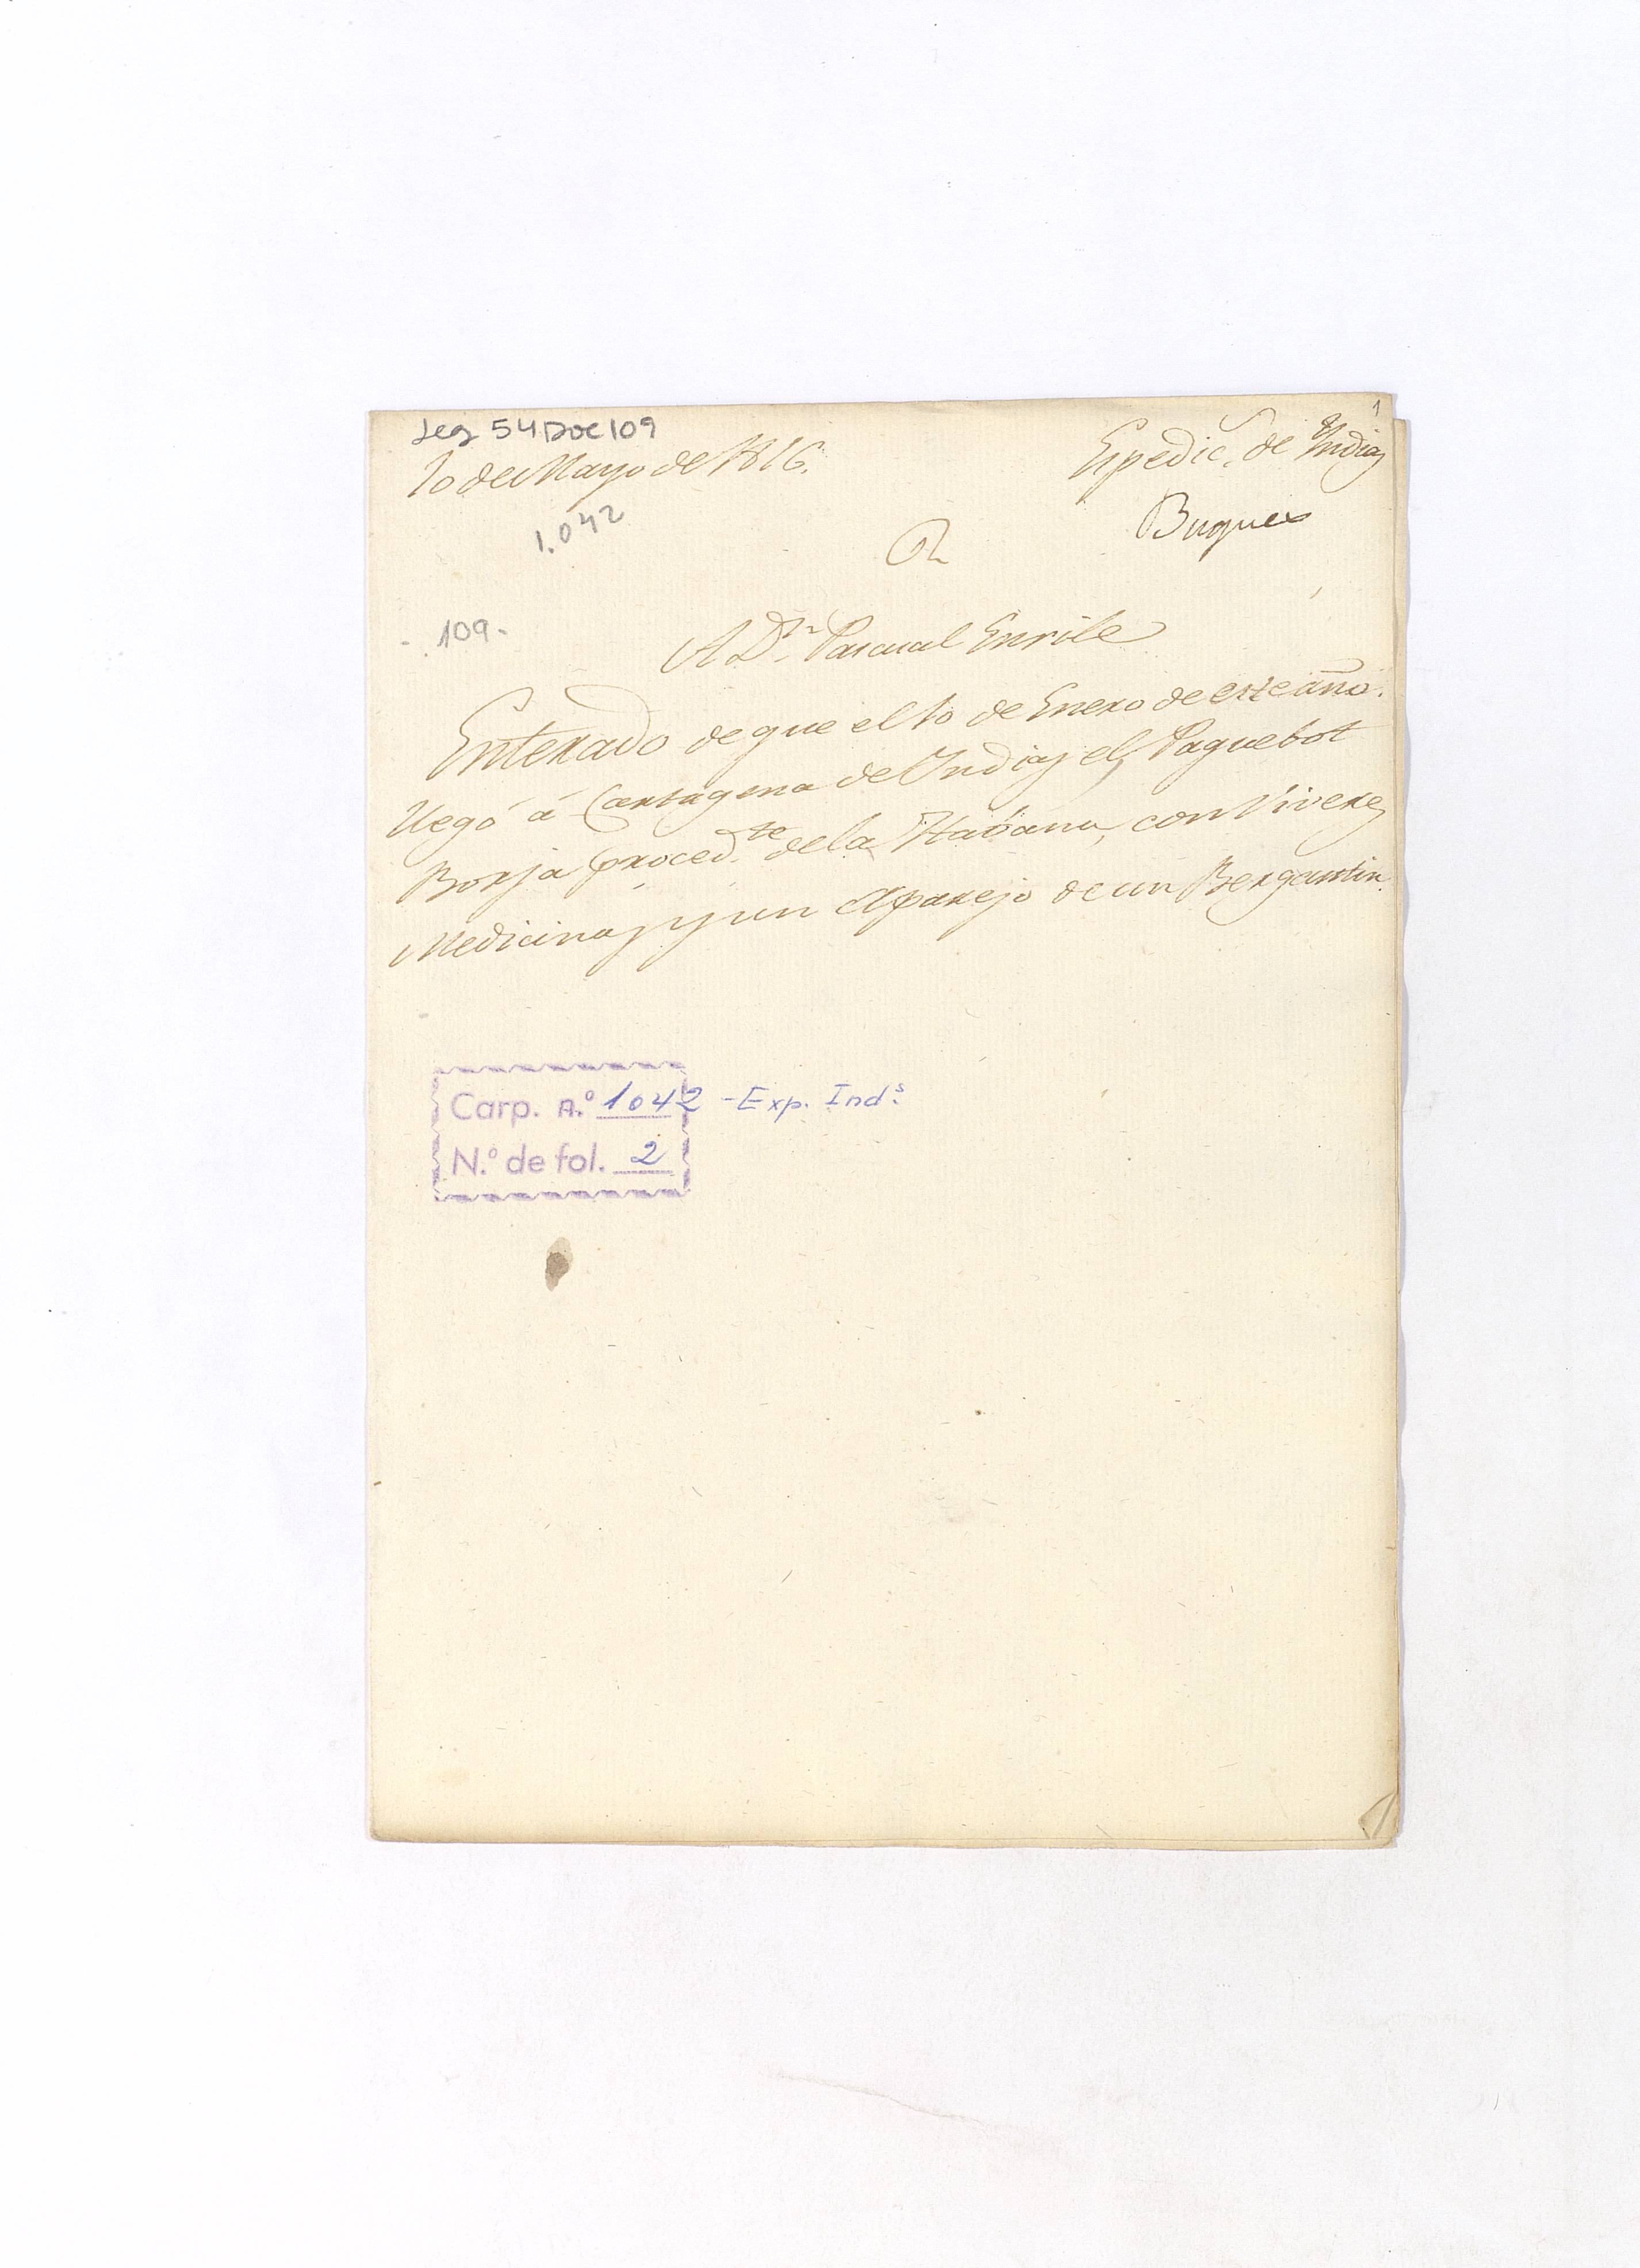 Leg 54 Doc 109
1
10 de Mayo de 1816.
Espedic. de Yndias
1.042
Buques
R
-109-
A Dn. Pascual Enrile
Enterado de que el 10 de Enero de este año.
llegó á Cartagena de Yndias el Paquebot
Borja proced.te de la Habana, con Viveres
Medicinas y un Aparejo de un Bergantin.
Carp. n.º 1042 - Exp. Ind.s
N.º de fol. 2